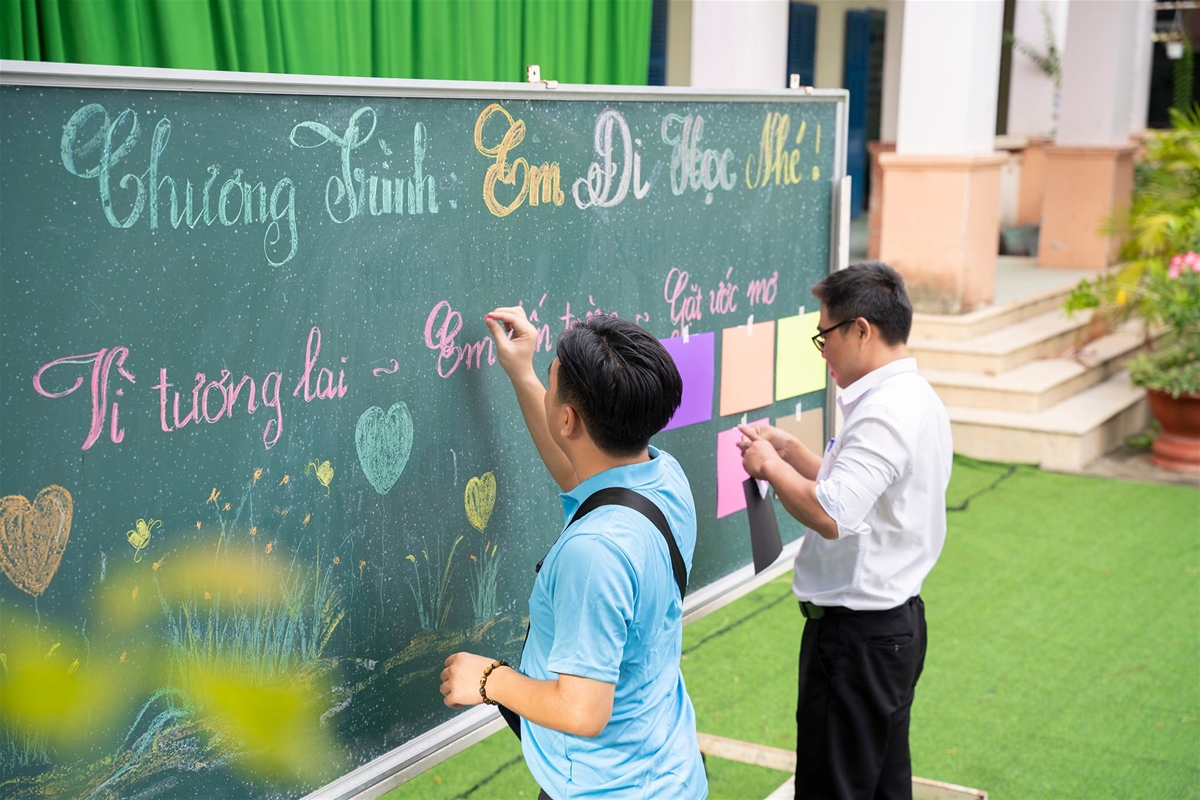 Chương Trình: Em Đi Học Nhé!
Vì tương lai ~ Em đến trường ~ Gặt ước mơ